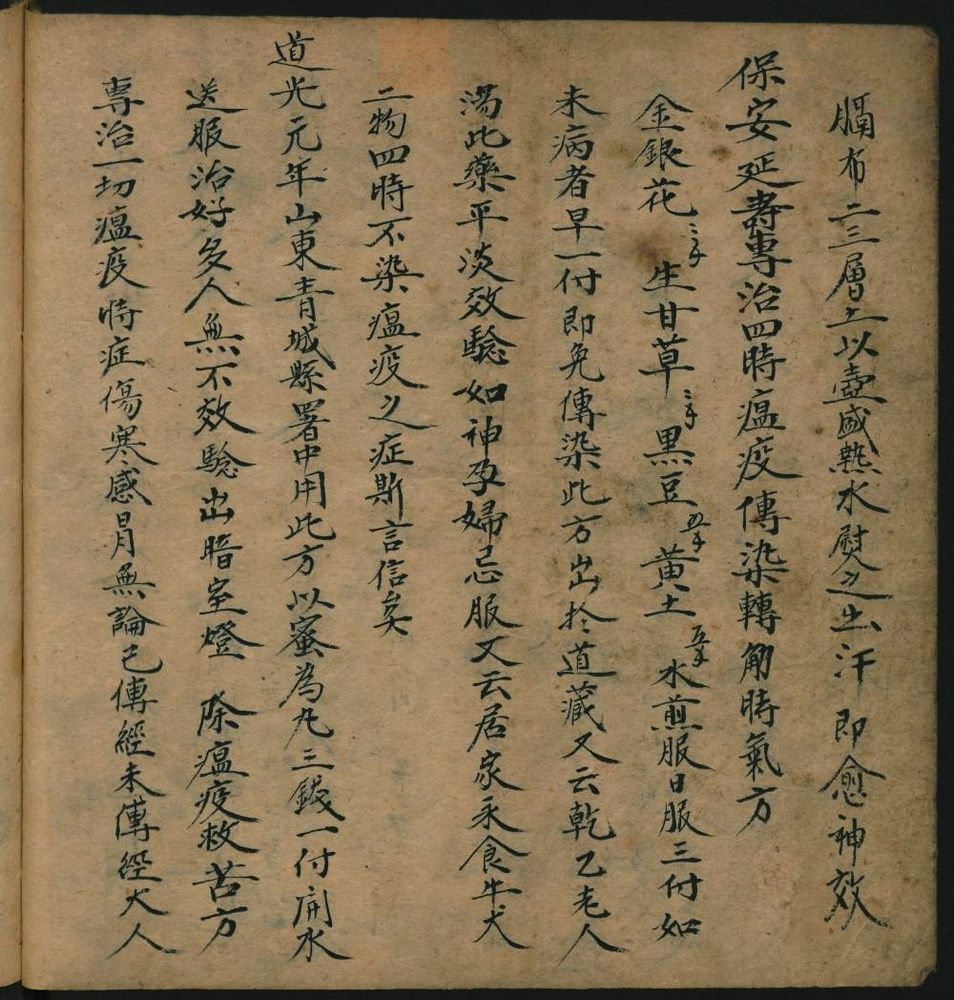 膈布二三層上以壺盛熱水熨之出汗即愈神效
保安延壽專治四時瘟疫傳染轉觔時氣方
金銀花三千 生甘草三千 黑豆五千 黃土五千 水煎服日服三付如
未病者早一付即免傳染此方出於道藏又云乾乙老人
湯此藥平淡效驗如神孕婦忌服又云居家永食牛犬
二物四時不染瘟疫之症斯言信矣
道光元年山東青城縣署中用此方以蜜為丸三錢一付開水
送服治好多人無不效驗出暗室燈 除瘟疫救苦方
專治一切瘟疫時症傷寒感冒無論已傳經未傳經大人